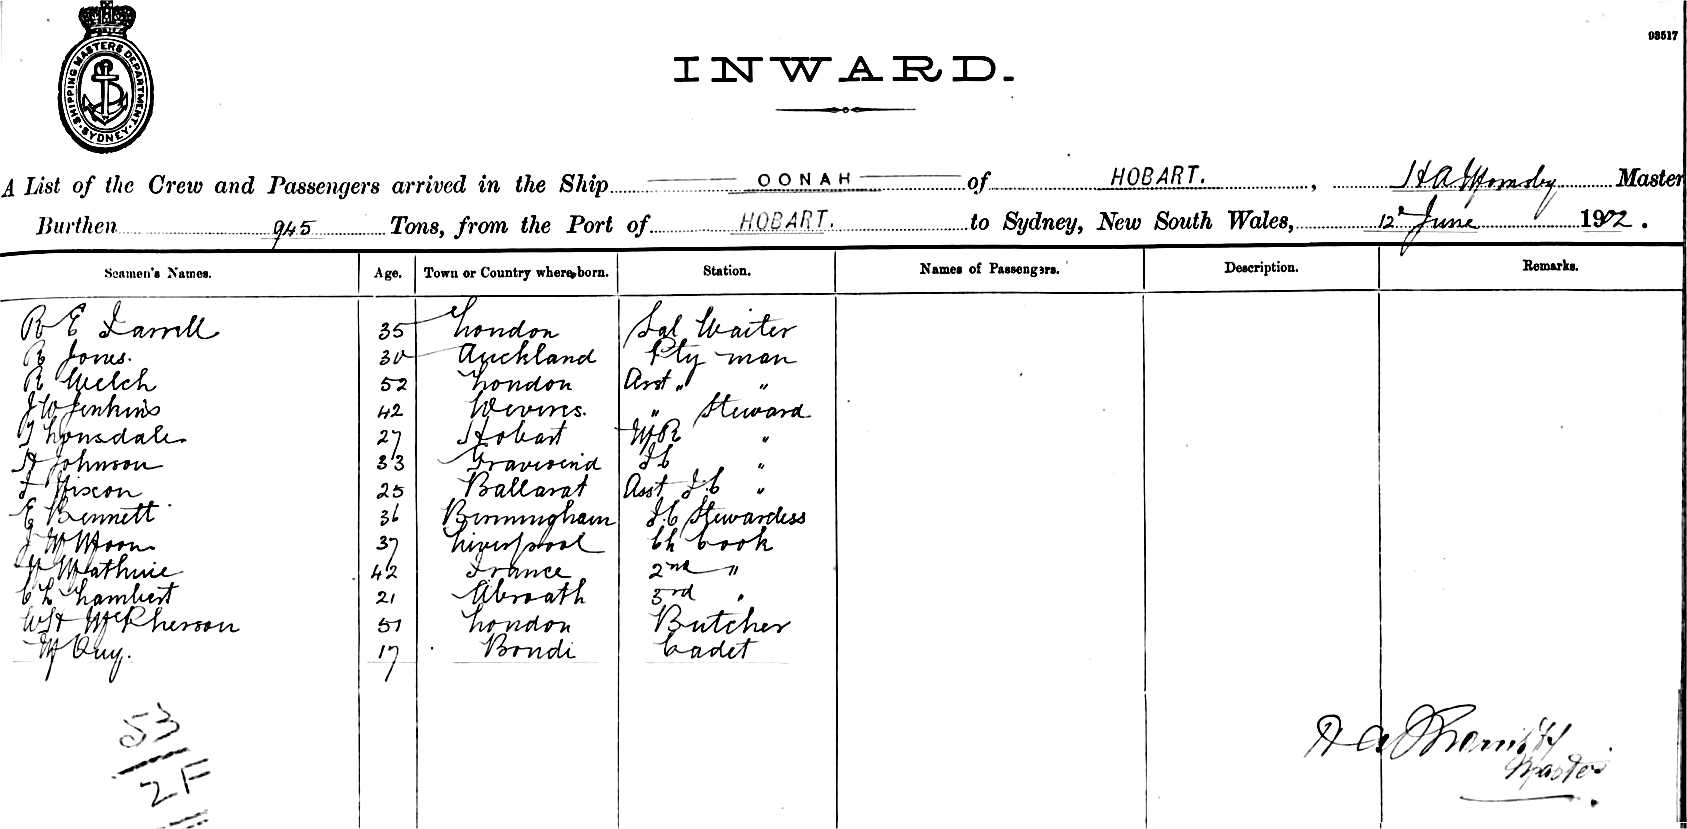 SHIPPING MASTERS DEPARTMENT · SYDNEY ·
03517
INWARD.
A List of the Crew and Passengers arrived in the Ship OONAH of HOBART. , H A Master
Burthen 945 Tons, from the Port of HOBART. to Sydney, New South Wales, 12 June 1902.
Seamen's Names. Age. Town or Country where born. Station. Names of Passengers. Description. Remarks.
R E Farrell 35 London Sal Waiter
R Jones. 30 Auckland Pty man
R Welch 52 London Asst " "
J W Jenkins 42 " Steward
T Lonsdale 27 Hobart "
H Johnson 33 Gravesend F C "
F Hixcon 25 Ballarat Asst F.C "
E Bennett 36 Birmingham F.C Stewardess
J W Moon 37 Liverpool Ch Cook
42 France 2nd "
C L Lambert 21 Abroath 3rd "
W H McPherson 51 London Butcher
Guy. 17 Bondi Cadet
53
2F
H A
Master